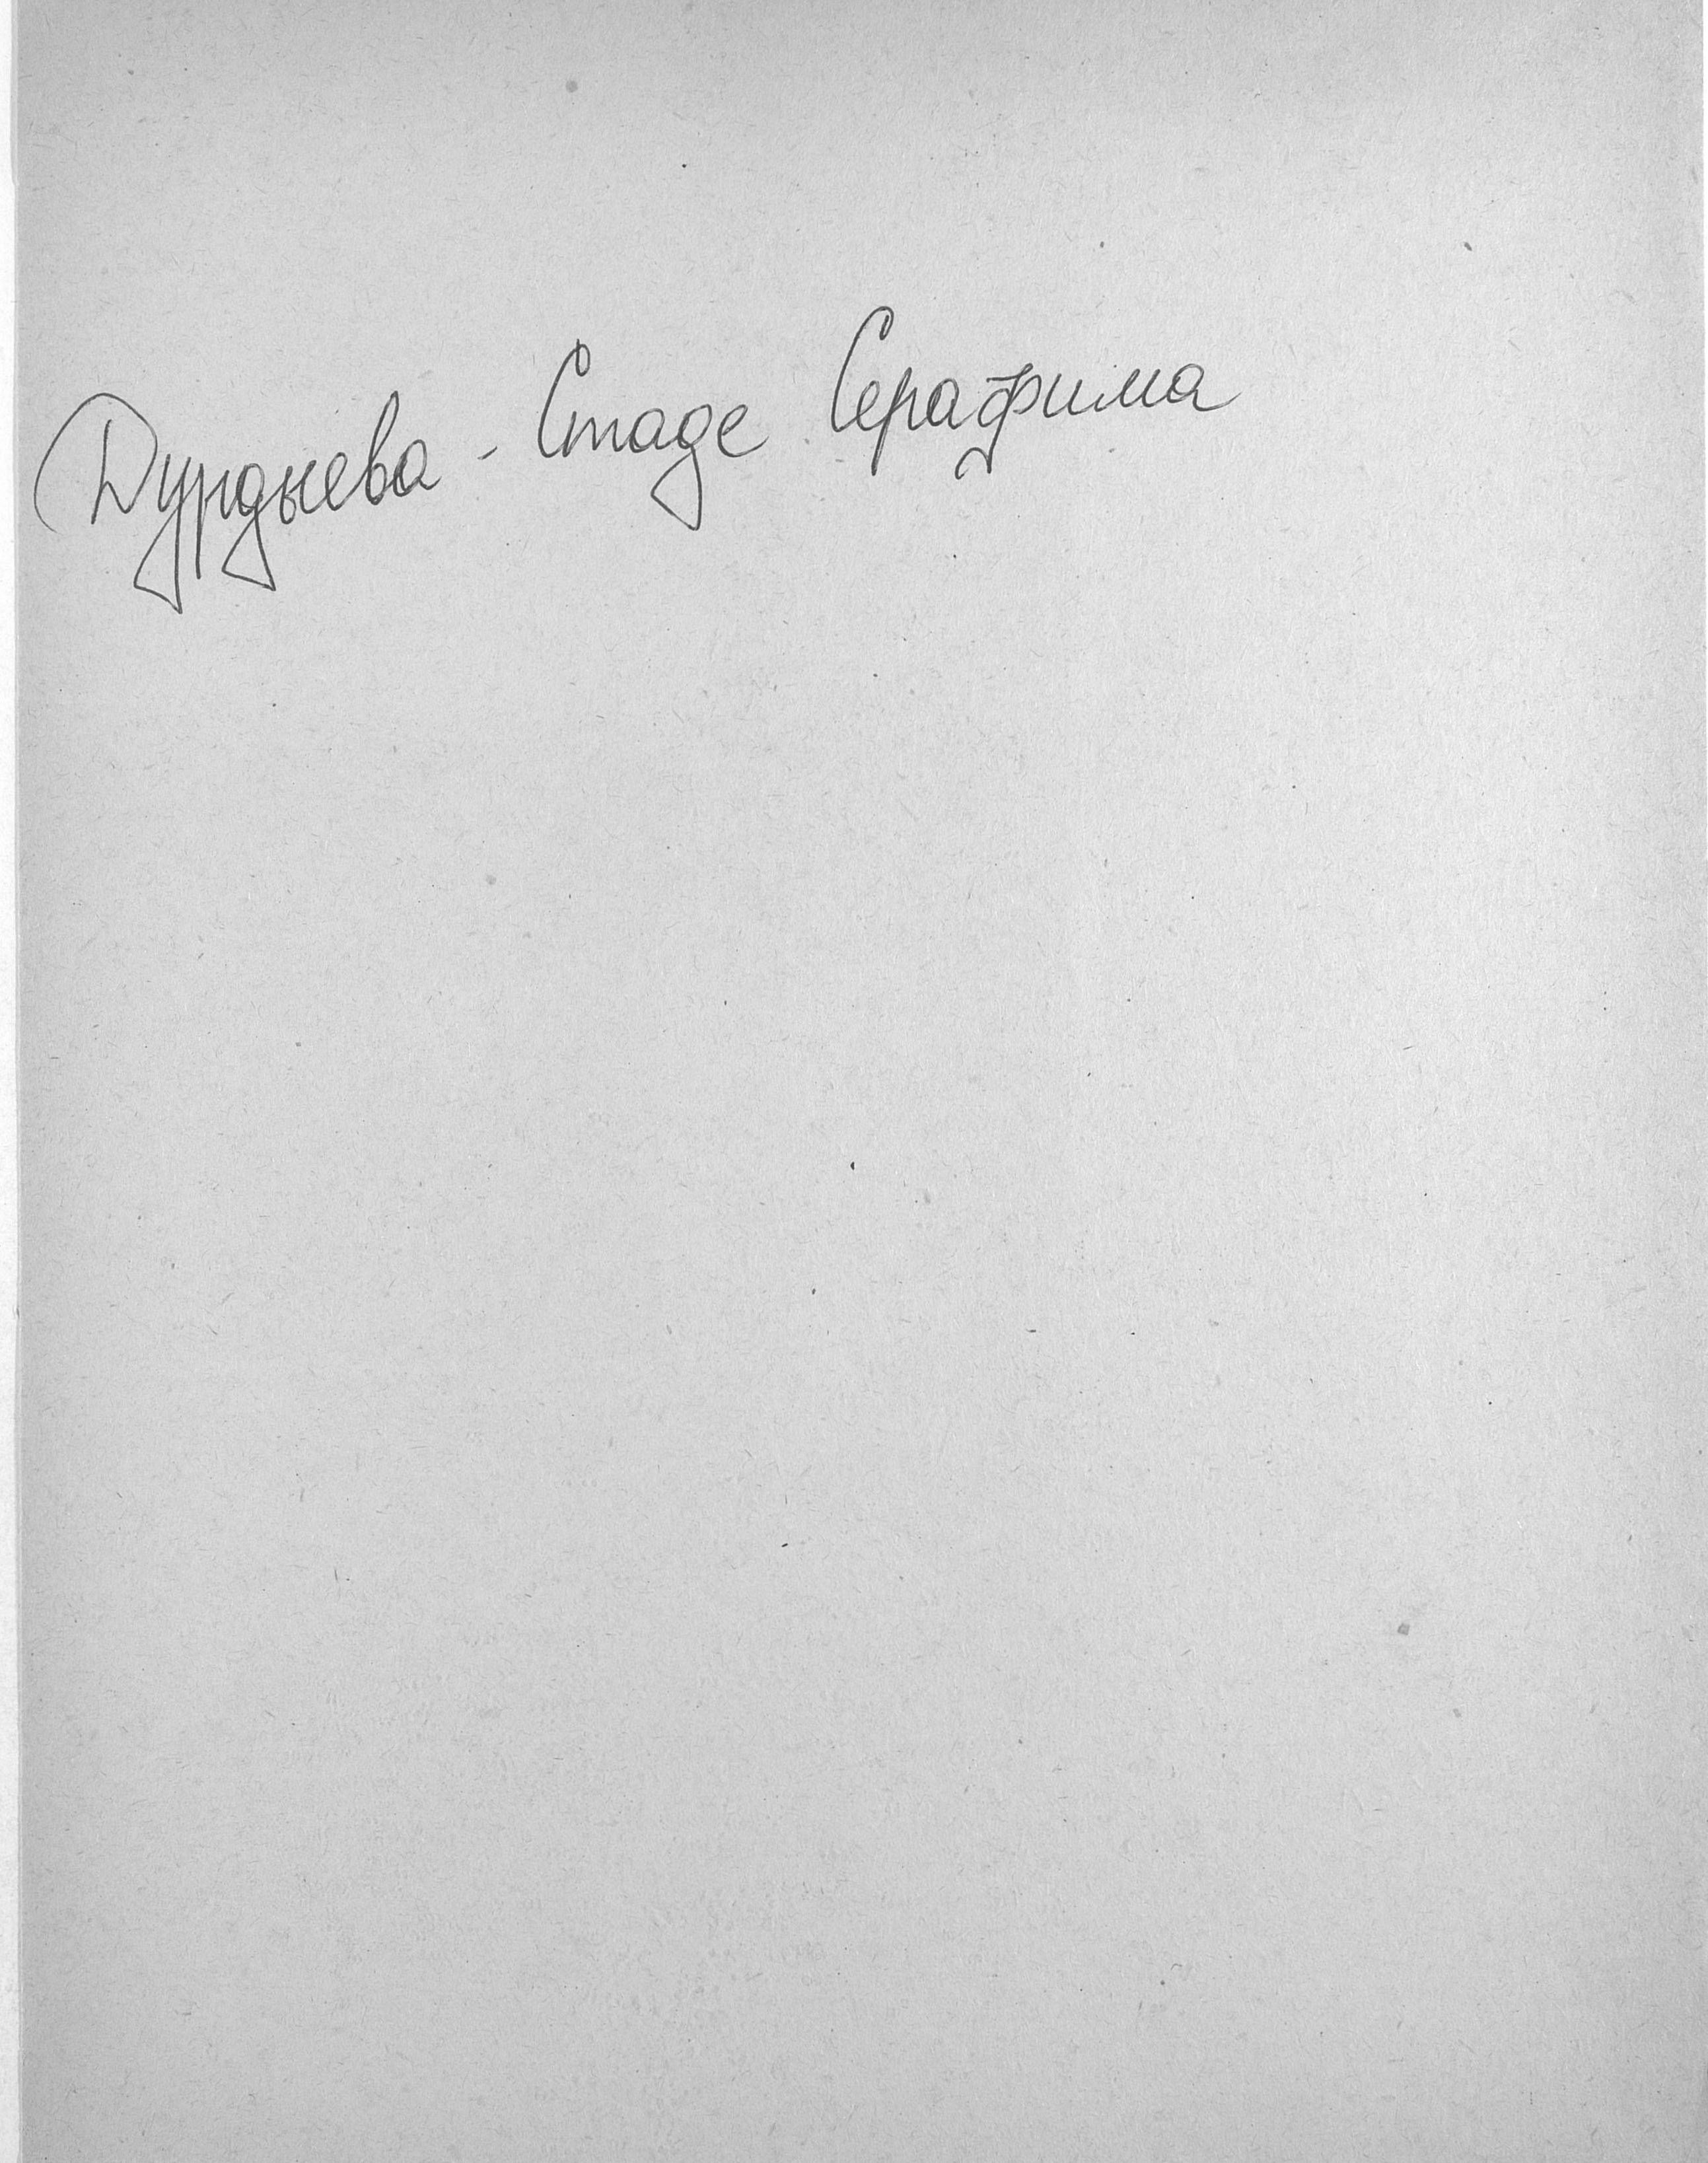 Дурдыева - Стаде Серафима